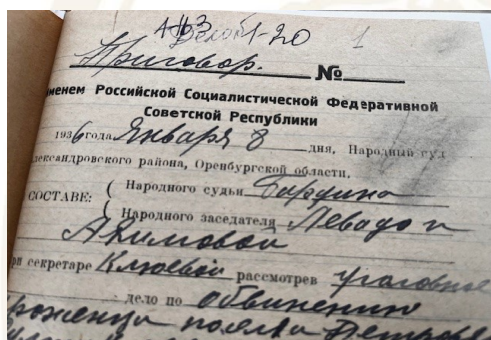 Дело 1-20 1
Приговор. №
именем Российской Социалистической Федеративной
Советской Республики
1936 года Января 8 дня, Народный суд
лександровского района, Оренбургской области,
СОСТАВЕ: Народного судьи Бардина
Народного заседателя Левадо и
Акимовой
ри секретаре Клюевой рассмотрев уголовное
дело по обвинению
роженца поселка Петровс